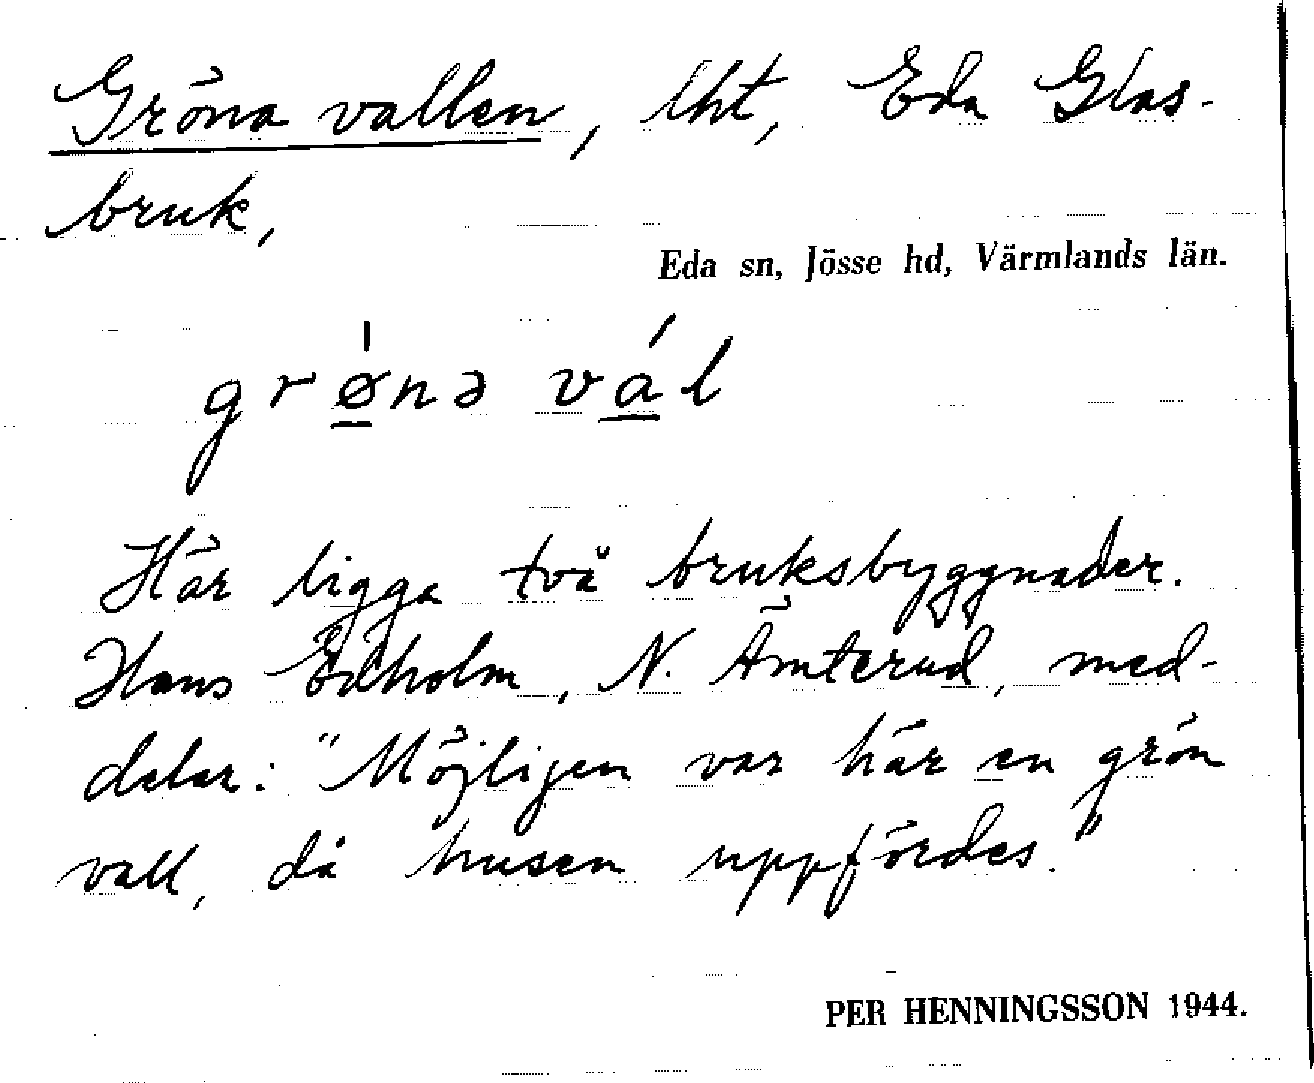 Gröna vallen, lht, Eda Glas-
bruk,
Eda sn, Jösse hd, Värmlands län.
grø̲̍nə vá̲l
Här ligga två bruksbyggnader.
Hans Edholm, N. Ämterud, med-
delar: "Möjligen var här en grön
vall, då husen uppfördes."
PER HENNINGSSON 1944.